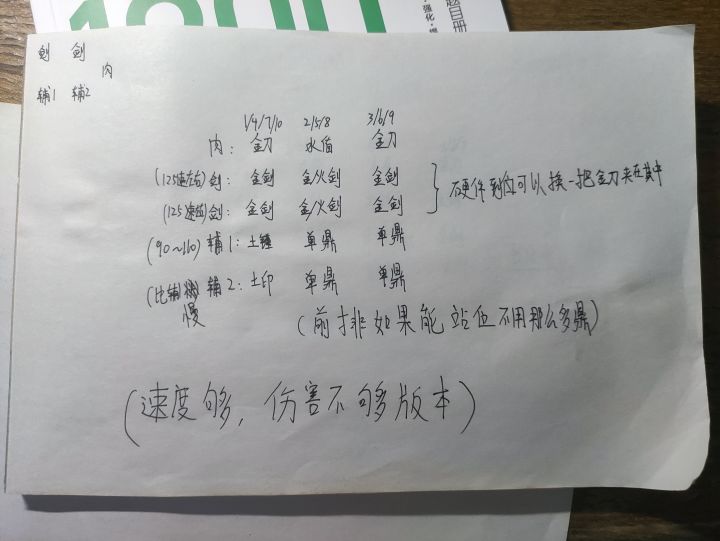 题目册
·强化·
剑 剑
肉
辅1 辅2
1/4/7/10 2/5/8 3/6/9
肉: 金刀 水盾 金刀
(125速左右)剑: 金剑 金/火剑 金剑
(125速左右)剑: 金剑 金/火剑 金剑
} 硬件到位可以换一把金刀夹在其中
(90~110) 辅1: 土锤 单鼎 单鼎
(比辅1慢) 辅2: 土印 单鼎 单鼎
(前排如果能站住不用那么多鼎)
(速度够,伤害不够版本)